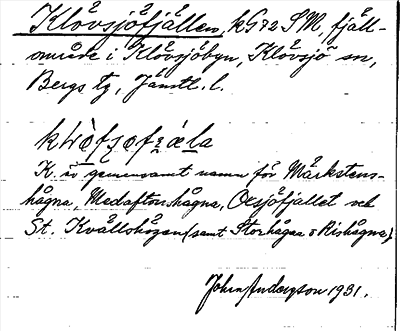 Klövsjöfjällen, k G 72 S M, fjäll-
område i Klövsjöbyn, Klövsjö sn,
Bergs tg, Jämtl. l.
K. är gemensamt namn för Märkstens-
hågna, Medaftonshågna, Oxsjöfjället och
St. Kvållshögen (samt Storhågna o Rishågna).
John Anderson 1931.